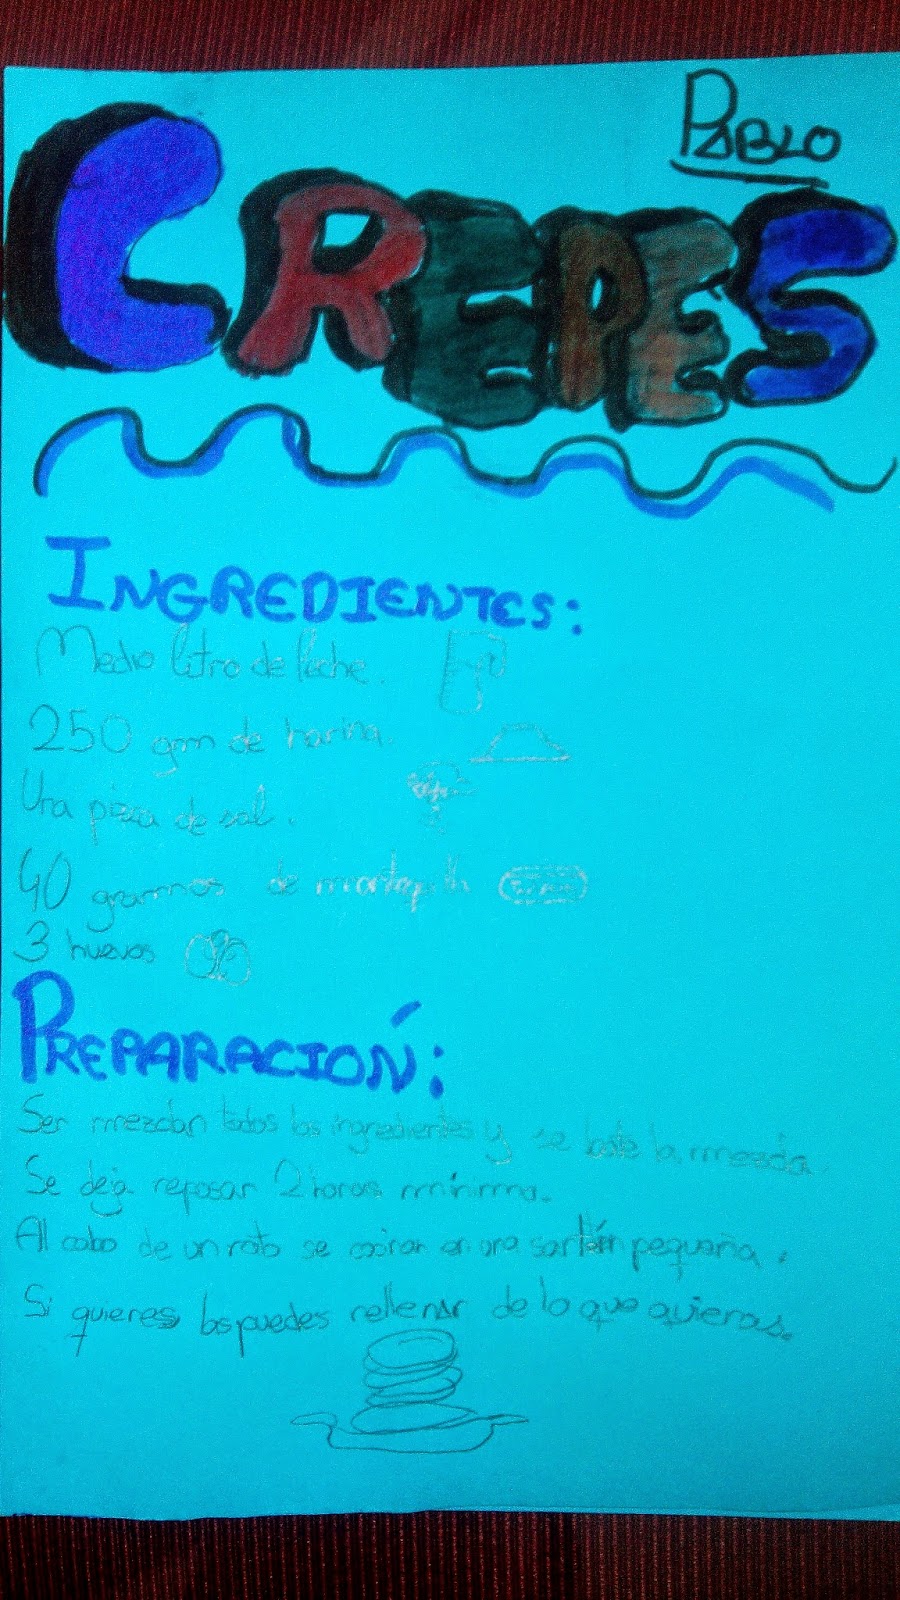 PABLO
CREPES
INGREDIENTES:
Medio litro de leche.
250 grm de harina.
Una pizca de sal.
40 gramos de
3 huevos
PREPARACIÓN:
Ser mezclan todos los ingredientes y se bate la mezcla.
Se deja reposar 2 horas mínimo.
Al cabo de un rato se cocinan en una sartén pequeña.
Si quieres los puedes rellenar de lo que quieras.